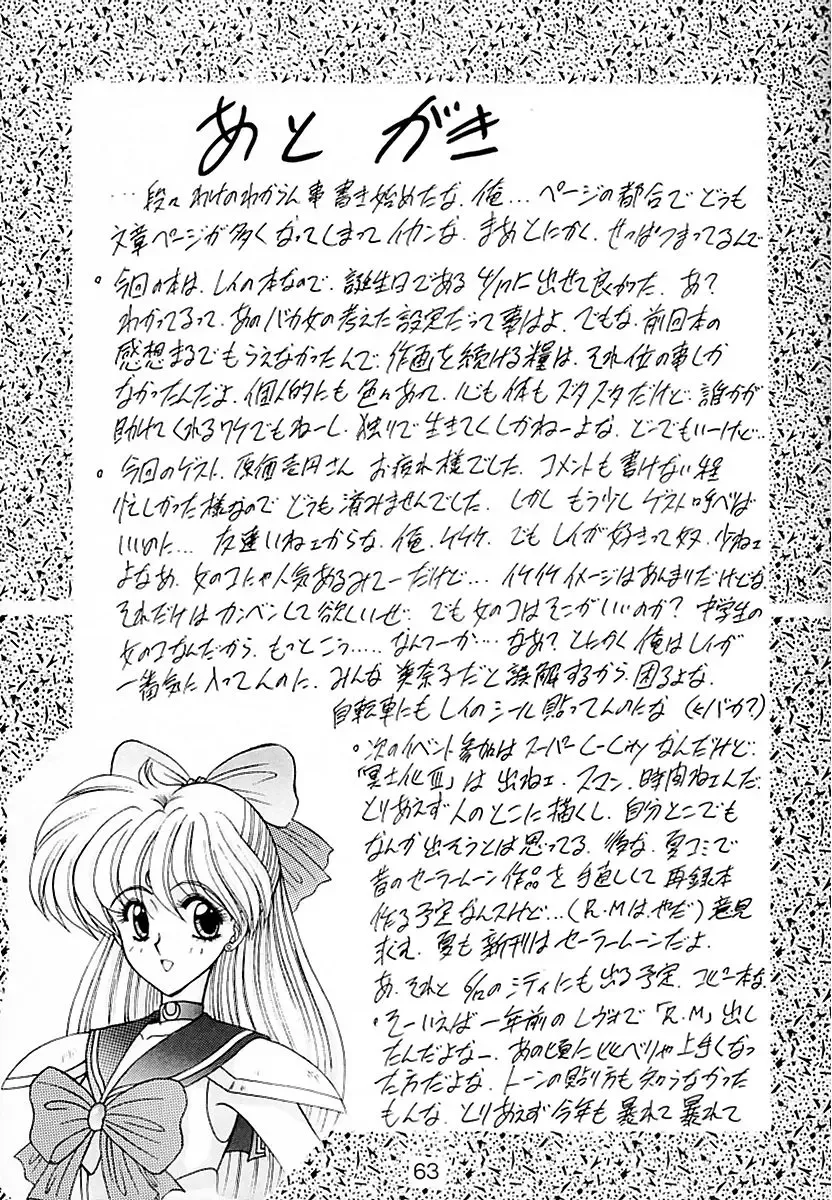 あとがき
…段々わけのわからん事書き始めたな、俺…ページの都合でどうも
文章ページが多くなってしまってイカンな。まあとにかく、せっぱつまってるんで
。今回の本は、レイの本なので、誕生日である4/17に出せて良かった。あ?
わかってるって、あのバカ女の考えた設定だって事はよ。でもな、前回本の
感想まるでもらえなかったんで、作画を続ける糧は、それ位の事しか
なかったんだよ。個人的にも色々あって、心も体もズタズタだけど、誰かが
助けてくれるワケでもねーし、独りで生きてくしかねーよな。どーでもいーけど…
。今回のゲスト、原価壱円さん お疲れ様でした。コメントも書けない程
忙しかった様なので どうも済みませんでした。しかし もう少しゲスト呼べりば
いいのに… 友達いねェからな、俺、ケケケ。でも レイが好きって奴、少ねェ
よなあ。女のコにゃ人気あるみてーだけど… イケイケイメージはあんまりだけどな
それだけはカンベンして欲しいぜ。でも女のコはそこがいいのか? 中学生の
女のコなんだから、もっとこう……なんつーか…なあ? とにかく俺はレイが
一番気に入ってんのに、みんな 美奈子だと誤解するから、困るよな。
自転車にもレイのシール貼ってんのにな(←バカ?)
。次のイベント参加はスーパーC-Cityなんだけど、
「冥土化Ⅲ」は出ねェ。スマン、時間ねェんだ
とりあえず人のとこに描くし、自分とこでも
なんか出そうとは思ってる。 な。夏コミで
昔のセーラームーン作品を手直しして再録本
作る予定なんスけど…(R.Mはやだ)意見
求む。夏も新刊はセーラームーンだよ。
あ、それと のシティにも出る予定。コピー本な
。そーいえば一年前のレヴォで「R.M」出し
たんだよなー。あの頃に比べりゃ上手くなっ
た方だよな。トーンの貼り方も知らなかった
もんな。とりあえず今年も暴れて暴れて
63